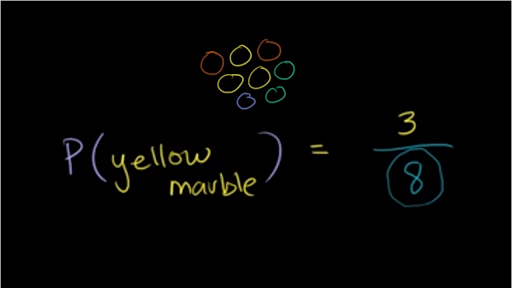 P(yellow marble) = 3/8